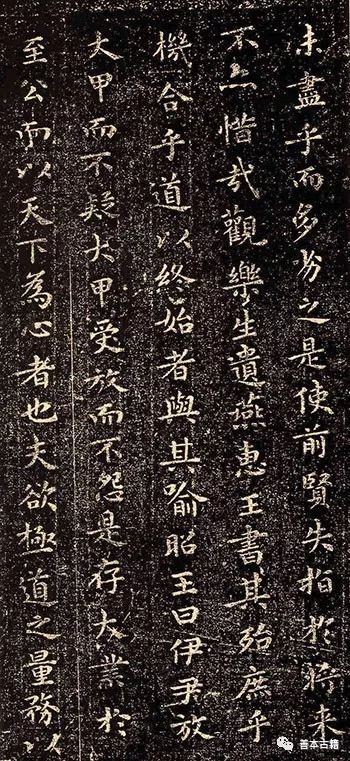 未盡乎而多劣之是使前賢失指於將来
不亦惜哉觀樂生遺燕惠王書其殆庶乎
機合乎道以終始者與其喻昭王曰伊尹放
大甲而不疑大甲受放而不怨是存大業於
至公而以天下為心者也夫欲極道之量務以
善本古籍